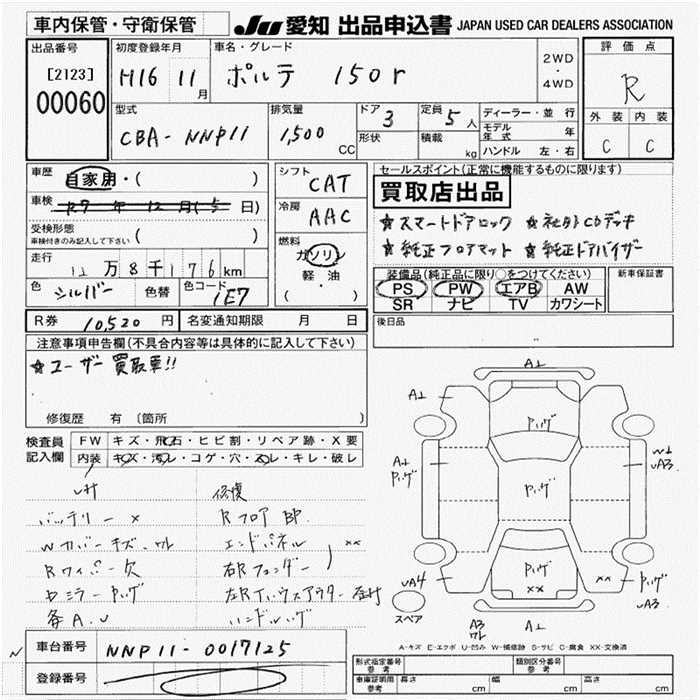 車内保管・守衛保管
JU 愛知 出品申込書 JAPAN USED CAR DEALERS ASSOCIATION
出品番号
[2123]
00060
初度登録年月
H16 11月
車名・グレード
ポルテ 150r
2WD
・
4WD
評価点
R
外装 内装
C C
型式
CBA-NNP11
排気量
1,500 CC
ドア 3
形状
定員 5人
積載 kg
ディーラー・並行
モデル年式 年
ハンドル 左・右
車歴
自家用・( )
車検
R7 年 12月(5 日)
受検形態
車検付きのみ記入して下さい ( )
走行
11万8千176km
色 シルバー 色替 色コード 1E7
シフト
CAT
冷房
AAC
燃料
ガソリン
軽・油
( )
セールスポイント(正常に機能するものに限ります)
買取店出品
☆スマートドアロック ☆社外CDデッキ
☆純正フロアマット ☆純正ドアバイザー
装備品(純正品に限り○をつけてください)
PS PW エアB AW
SR ナビ TV カワシート
新車保証書
後日品
R券 10,520 円 名変通知期限 月 日
注意事項申告欄(不具合内容等は具体的に記入して下さい)
☆ユーザー買取車!!
修復歴 有 〔箇所 〕
検査員記入欄
FW キズ・飛石・ヒビ割・リペア跡・X要
内装 キズ・汚レ・コゲ・穴・スレ・キレ・破レ
修復
バッテリー ×
Wカバーキズ・ワレ
Rワイパー欠
各A.U
Rフロア BP
エンドパネル
右Rフェンダー ××
A1
A1
パッゲ
A1
パッゲ
W1
UA3
パッゲ
パッゲ
××
××
UA4
パッゲ
UA3
スペア
A3
ワレ
A1
A-キズ E-エクボ U-凹み W-補修跡 S-サビ C-腐食 XX-交換済
車台番号 NNP11-0017125
登録番号
形式指定番号 参考
類別区分番号 参考
車庫証明用 参考 長さ cm 幅 cm 高さ cm